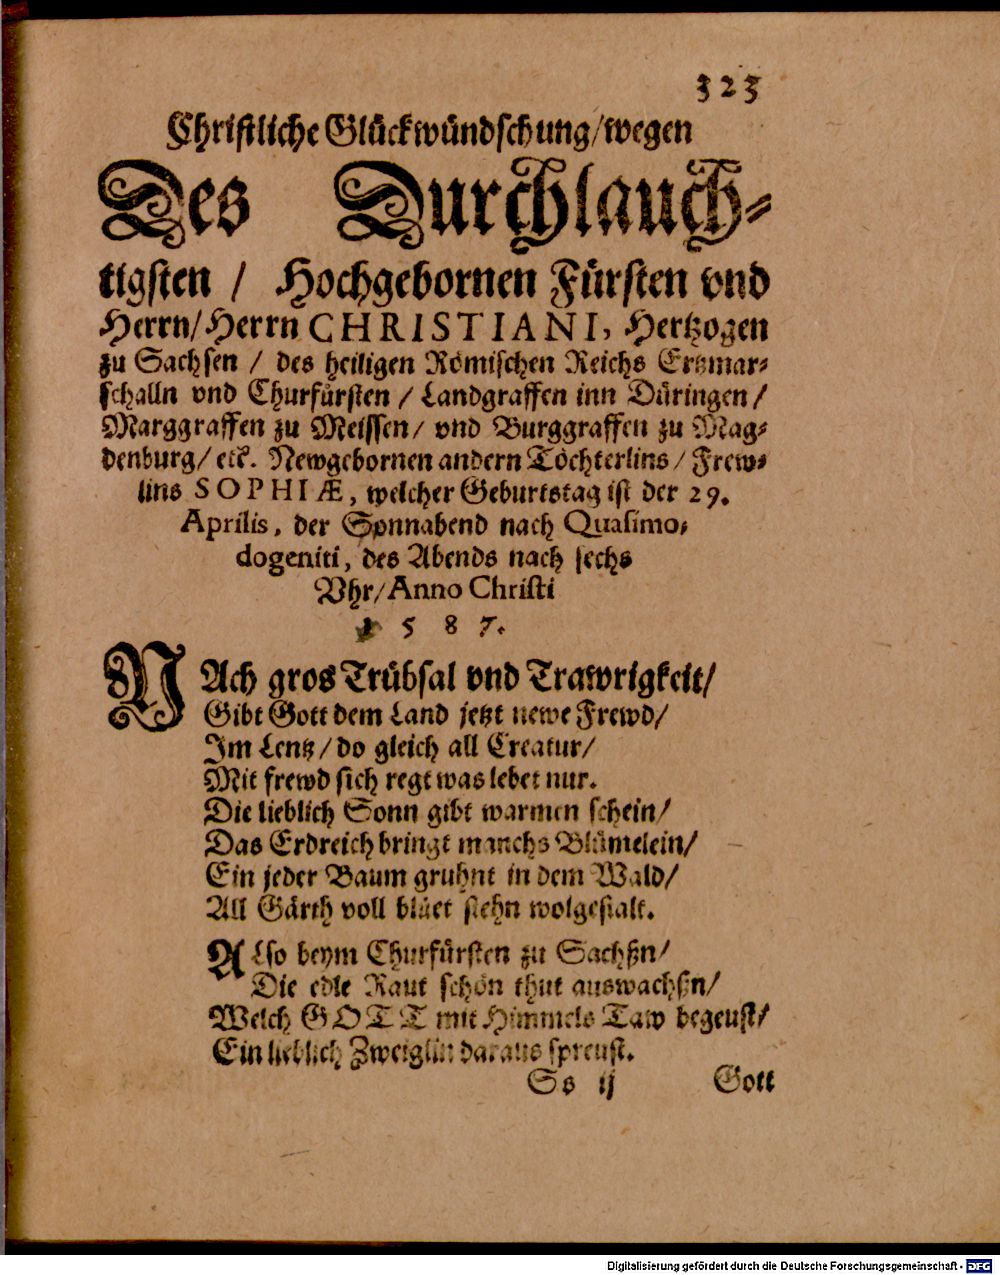 323
Christliche Glückwündschung/wegen
Des Durchlauch-
tigsten / Hochgebornen Fürsten vnd
Herrn/Herrn CHRISTIANI, Hertzogen
zu Sachsen / des heiligen Römischen Reichs Ertzmar-
schalln vnd Churfürsten / Landgraffen inn Düringen /
Marggraffen zu Meissen/ vnd Burggraffen zu Mag-
denburg/ etc. Newgebornen andern Töchterlins / Frew-
lins SOPHIÆ, welcher Geburtstag ist der 29.
Aprilis, der Sonnabend nach Quasimo-
dogeniti, des Abends nach sechs
Vhr/Anno Christi
1587.
NAch gros Trübsal vnd Trawrigkeit/
Gibt Gott dem Land jetzt newe Frewd/
Im Lentz/ do gleich all Creatur/
Mit frewd sich regt was lebet nur.
Die lieblich Sonn gibt warmen schein/
Das Erdreich bringt manchs Blümelein/
Ein jeder Baum gruhnt in dem Wald/
All Gärth voll blüet stehn wolgestalt.
Also beym Churfürsten zu Sachßn/
Die edle Raut schön thut auswachsn/
Welch GOTT mit Himmels Taw begeust/
Ein lieblich Zweiglin daraus spreust.
Ss ij Gott
Digitalisierung gefördert durch die Deutsche Forschungsgemeinschaft - DFG